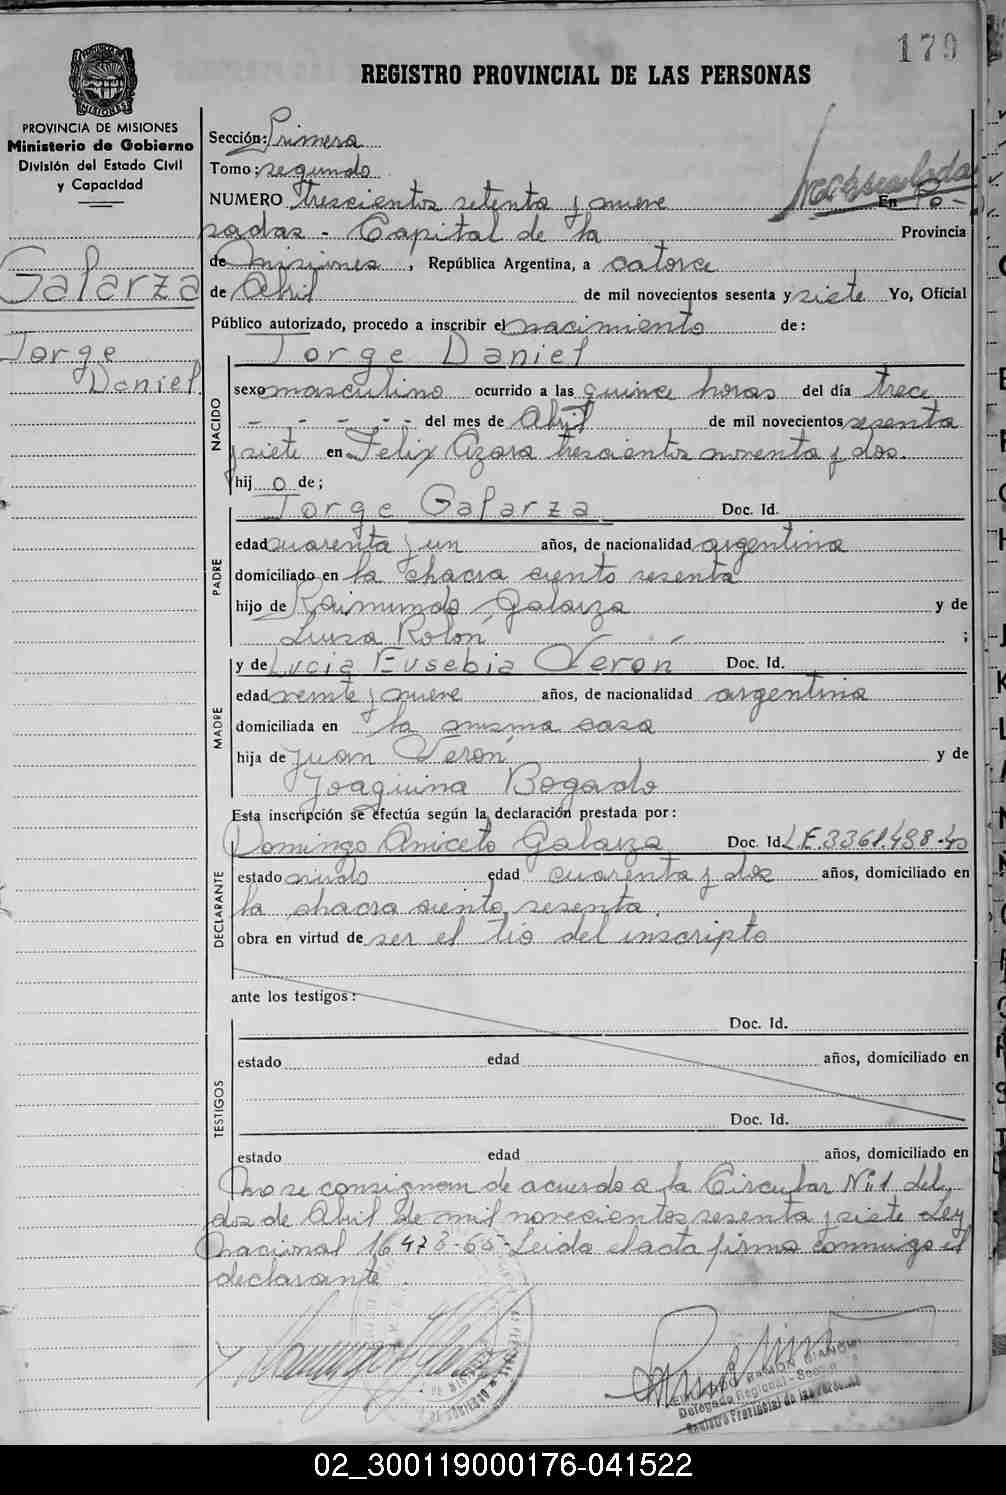 179
REGISTRO PROVINCIAL DE LAS PERSONAS
PROVINCIA DE MISIONES
Ministerio de Gobierno
División del Estado Civil
y Capacidad
Galarza
Jorge
Daniel
Sección: Primera
Tomo: segundo
NUMERO trescientos setenta y nueve En Po-
sadas - Capital de la Provincia
de Misiones, República Argentina, a catorce
de Abril de mil novecientos sesenta y siete Yo, Oficial
Público autorizado, procedo a inscribir el nacimiento de:
Jorge Daniel
NACIDO
sexo masculino ocurrido a las quince horas del día trece
- - - - - - del mes de Abril de mil novecientos sesenta
y siete en Felix Azara trescientos noventa y dos.
hij o de;
Jorge Galarza Doc. Id.
PADRE
edad cuarenta y un años, de nacionalidad argentina
domiciliado en la chacra ciento sesenta
hijo de Raimundo Galarza y de
Luisa Rolón ;
y de Lucia Eusebia Verón Doc. Id.
MADRE
edad veinte y nueve años, de nacionalidad argentina
domiciliada en la misma casa
hija de Juan Verón y de
Joaquina Bogado
Esta inscripción se efectúa según la declaración prestada por:
Domingo Aniceto Galarza Doc. Id. L.E. 3361.438
DECLARANTE
estado viudo edad cuarenta y dos años, domiciliado en
la chacra ciento sesenta.
obra en virtud de ser el tio del inscripto
ante los testigos:
Doc. Id.
TESTIGOS
estado edad años, domiciliado en
Doc. Id.
estado edad años, domiciliado en
no se consignan de acuerdo a la Circular Nº1 del
dos de Abril de mil novecientos sesenta y siete Ley
nacional 16478-65- Leida el acta firma conmigo el
declarante.
RAMON BIANCHI
Delegado Regional
Registro Provincial de las Personas
02_300119000176-041522